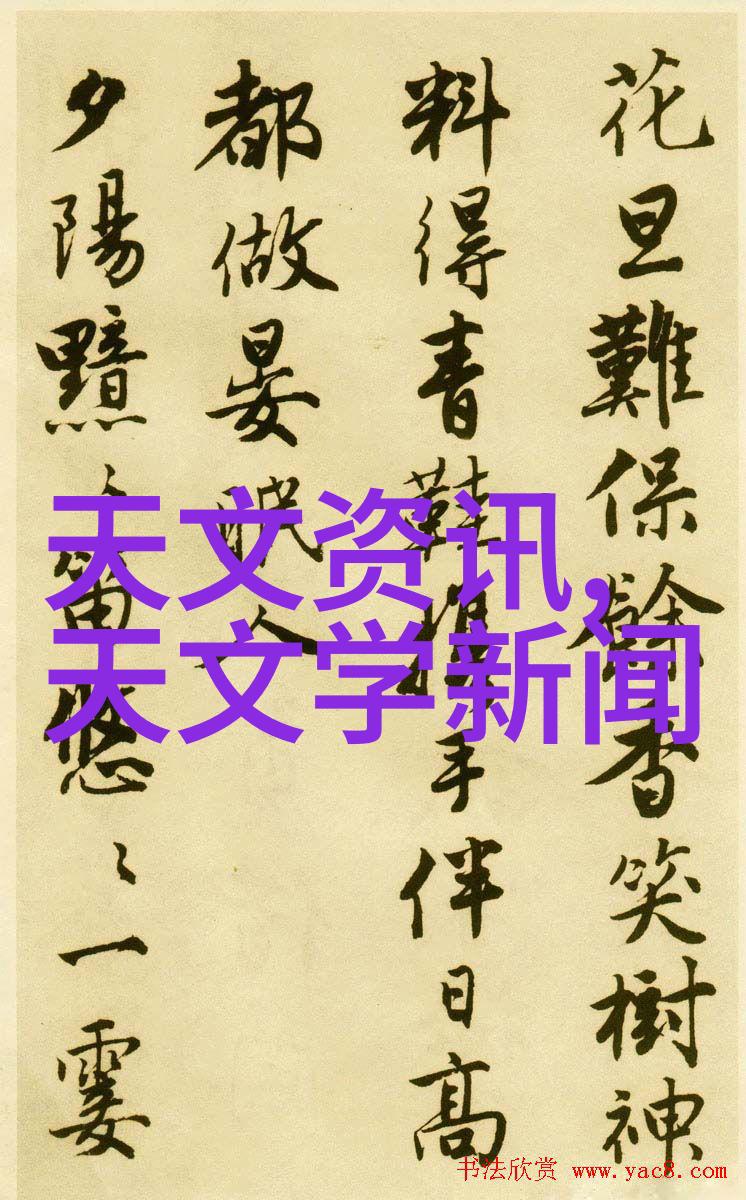 花旦難保餘香笑樹神
料得青鞋携手伴日高
都做晏眠人
夕陽黯〻笛悠〻一霎
天文资讯,
天文学新闻
书法欣赏 www.yac8.com